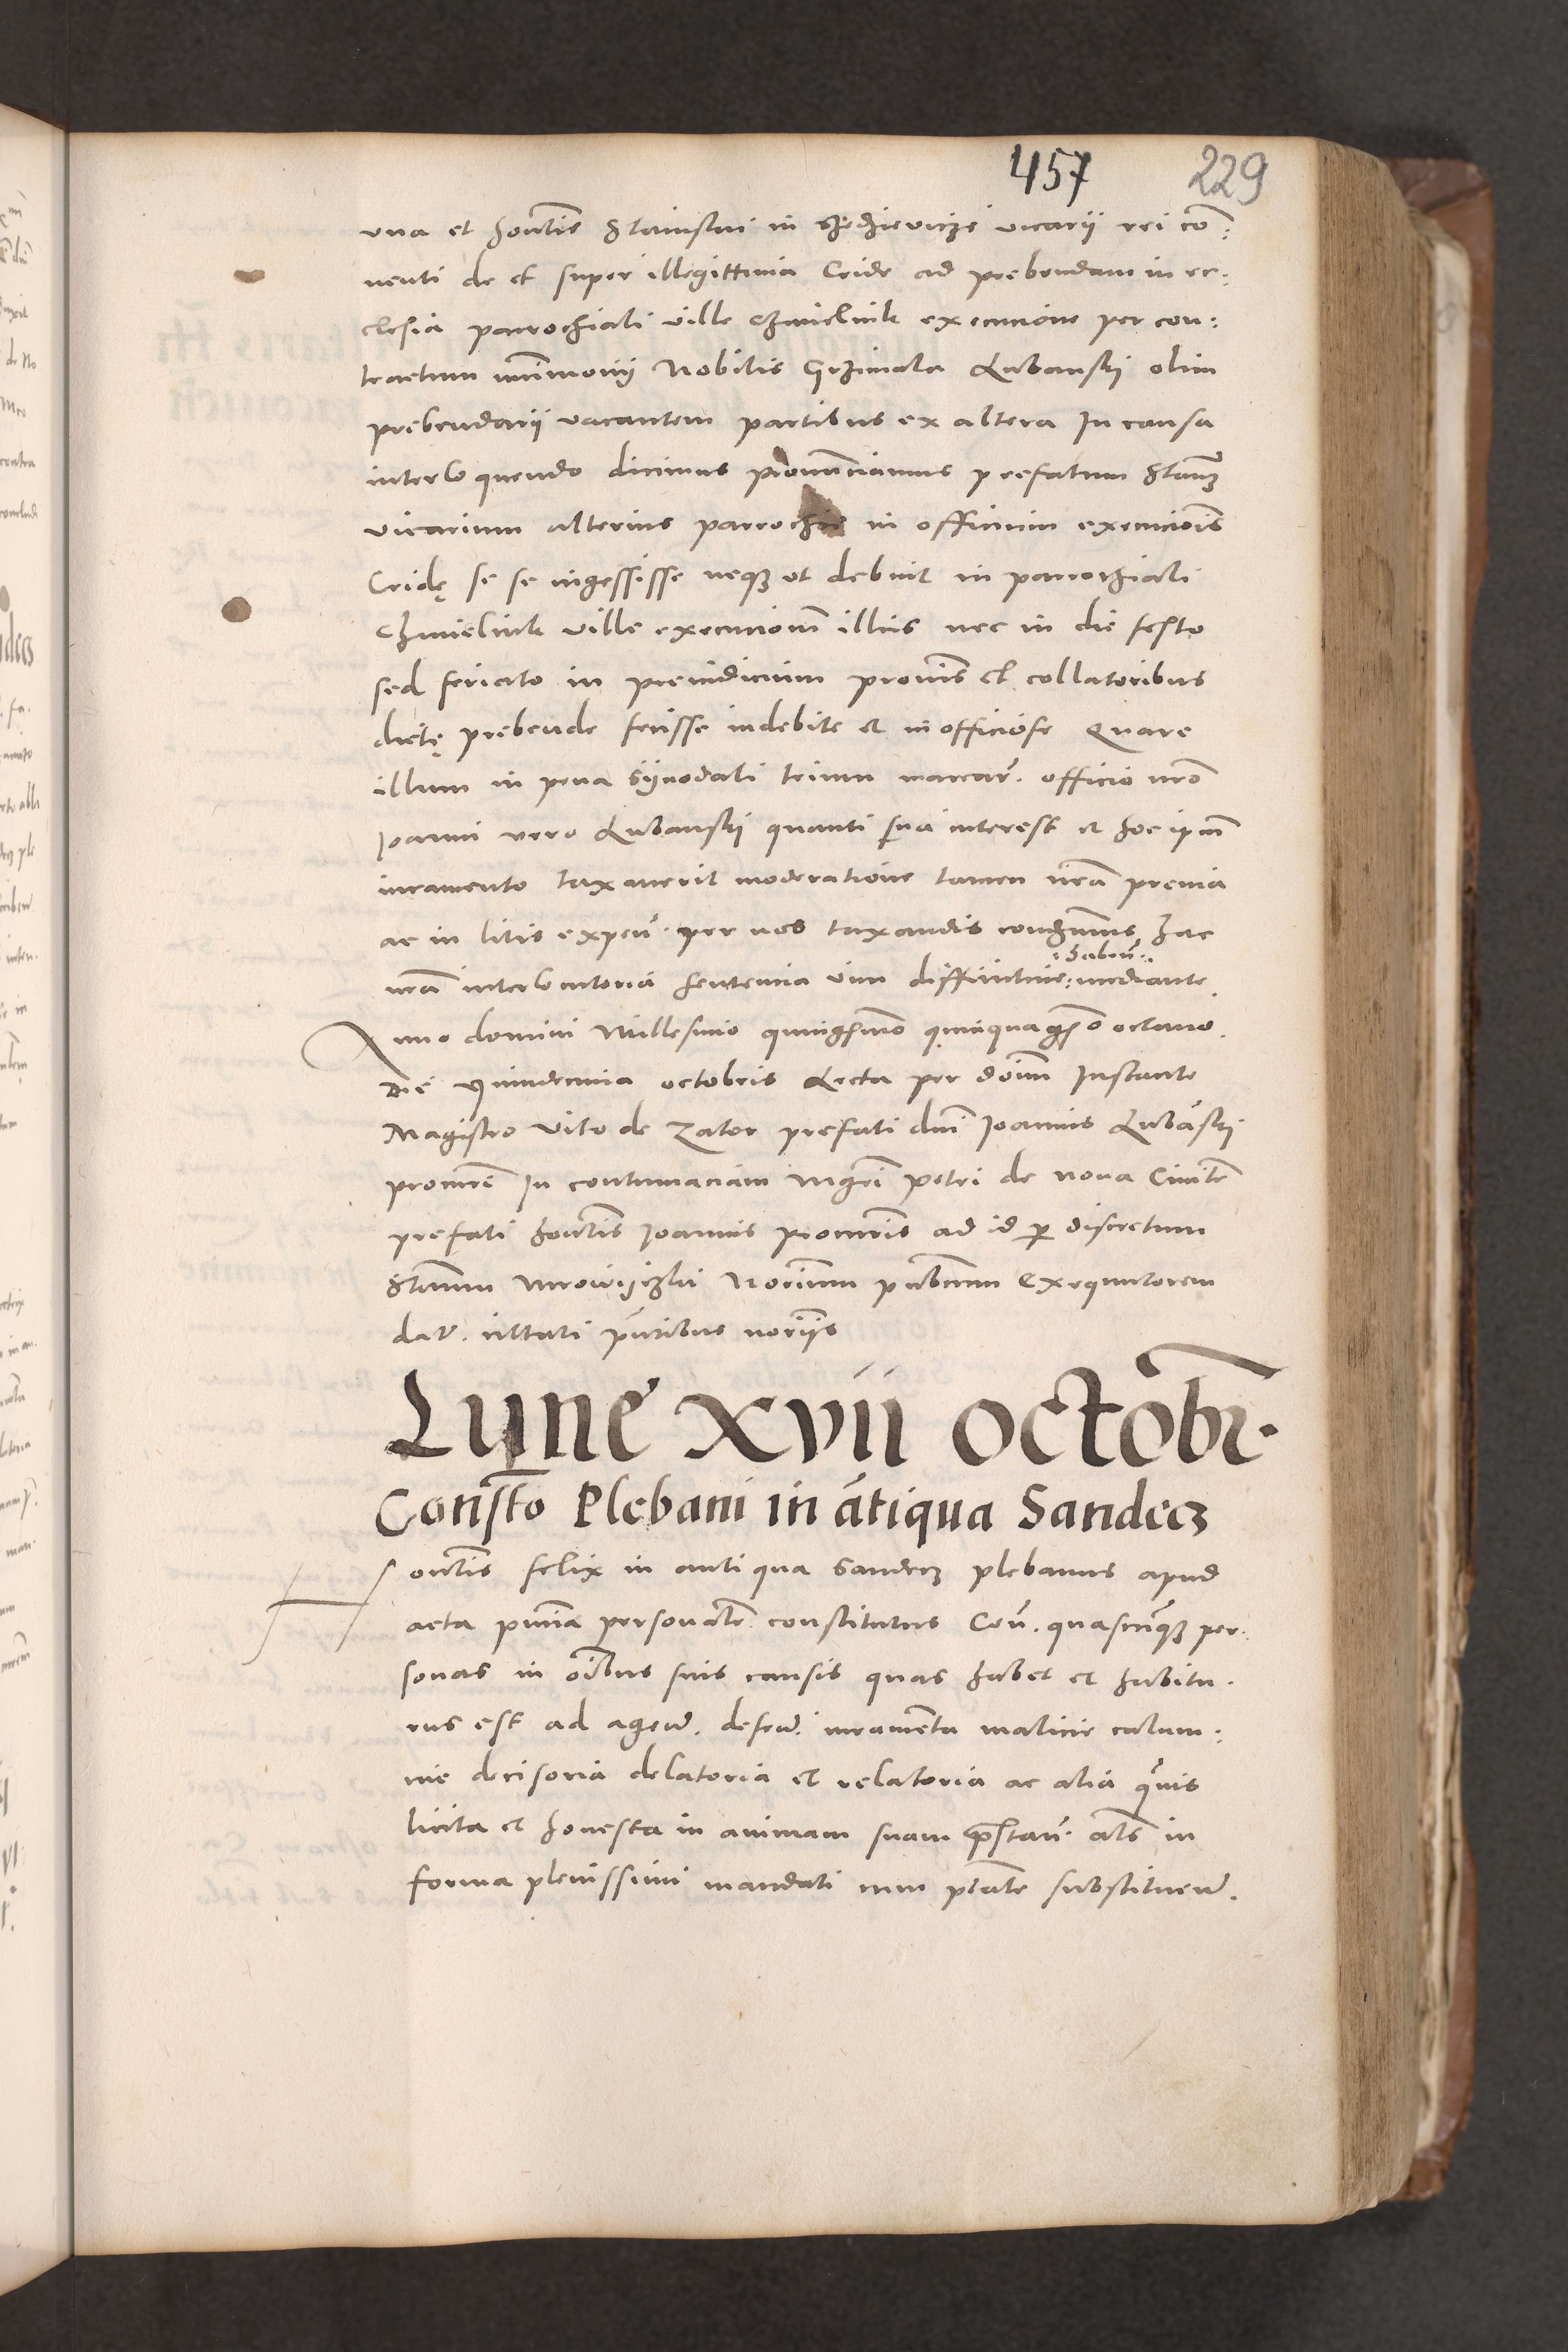 457 229
una et hontis Stanislai in Skrzeievicze vicarii rei co̅:
venti de et super illegittima Cride ad prebendam in ec:
clesia parrochiali ville Chmielnik executione per con:
tractum mr̅imonij Nobilis Grzimala Lubanski olim
prebendarij vacantem partibus ex altera In causa
interloquendo dicimus pronunciamus prefatum
vicarium alterius parrochie in officium execucionis
Cridę se se ingessisse neqꝫ ut debuit in parrochiali
Chmielnik ville executionem illius nec in die festo
sed feriato in preiudicium provis et collatoribus
dictę prebende fecisse indebite et in officiose Quare
illum in pena Sijnodali trium marcar. officio nro̅
Joanni vero Lubanski quanti sua interest et hoc ipm̅
iuramento taxaverit moderatione tamen nr̅a previa
ac in litis expen̅. per nos taxandis condemnamus hac
:haben̅:
nr̅a interlocutoria sentencia vim diffinitive: mediante
Anno domini Millesimo quingesimo quinquagesimo octavo.
Die quindecima octobris Lecta per dominum Instante
Magistro Vito de Zator prefati dni̅ Joannis Luba̅ski
procure̅ In contumaciam Mgri̅ Petri de nova Civite̅
prefati hontis Joannis procuris ad id per discretum
Stanm̅ Norium publicum Exequutorem
dat̅. citati pn̅tibus noriis
Lune xvii octobr.
Constō Plebani in a̅tiqua Sandecz
Hontis Felix in antiqua Sandecz plebanus apud
acta pn̅tia personalr̅ constitutus Con̅. quascu̅qꝫ per:
sonas in oi̅bus suis causis quas habet et habitu.
rus est ad agend. defend. iuramenta malicie calum:
nie decisoria delatoria et relatoria ac alia qvis
licita et honesta in animam suam prestan̅. als̅ in
forma plenissimi mandati cum ptate substituend.